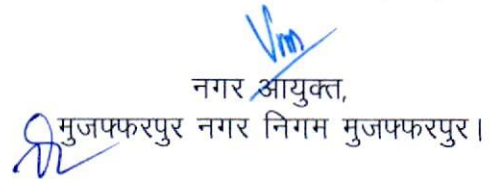 नगर आयुक्त,
मुजफ्फरपुर नगर निगम मुजफ्फरपुर।